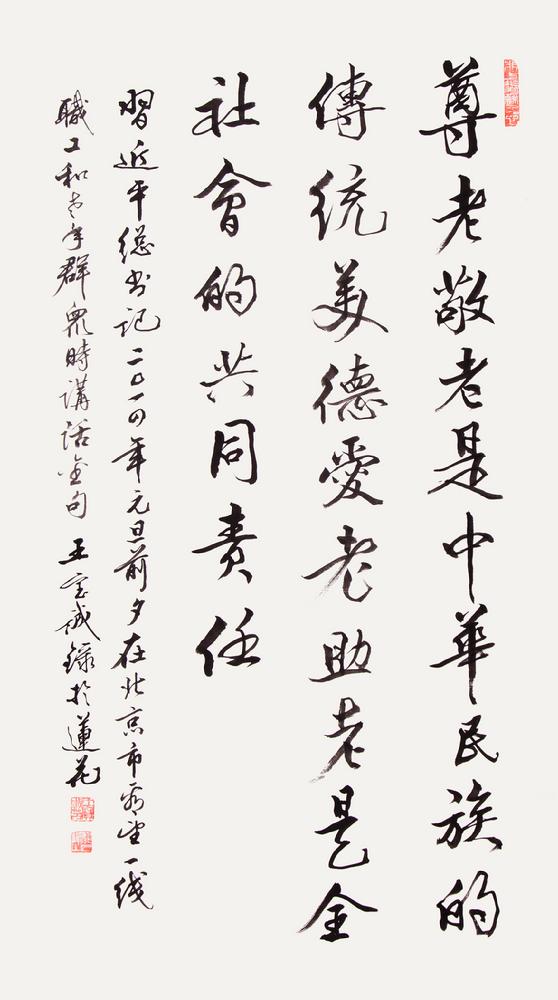 尊老敬老是中華民族的
傳統美德愛老助老是全
社會的共同責任
習近平總书記二〇一四年元旦前夕在北京市看望一线
職工和老年群衆時講話金句 王宝誠録於蓮花